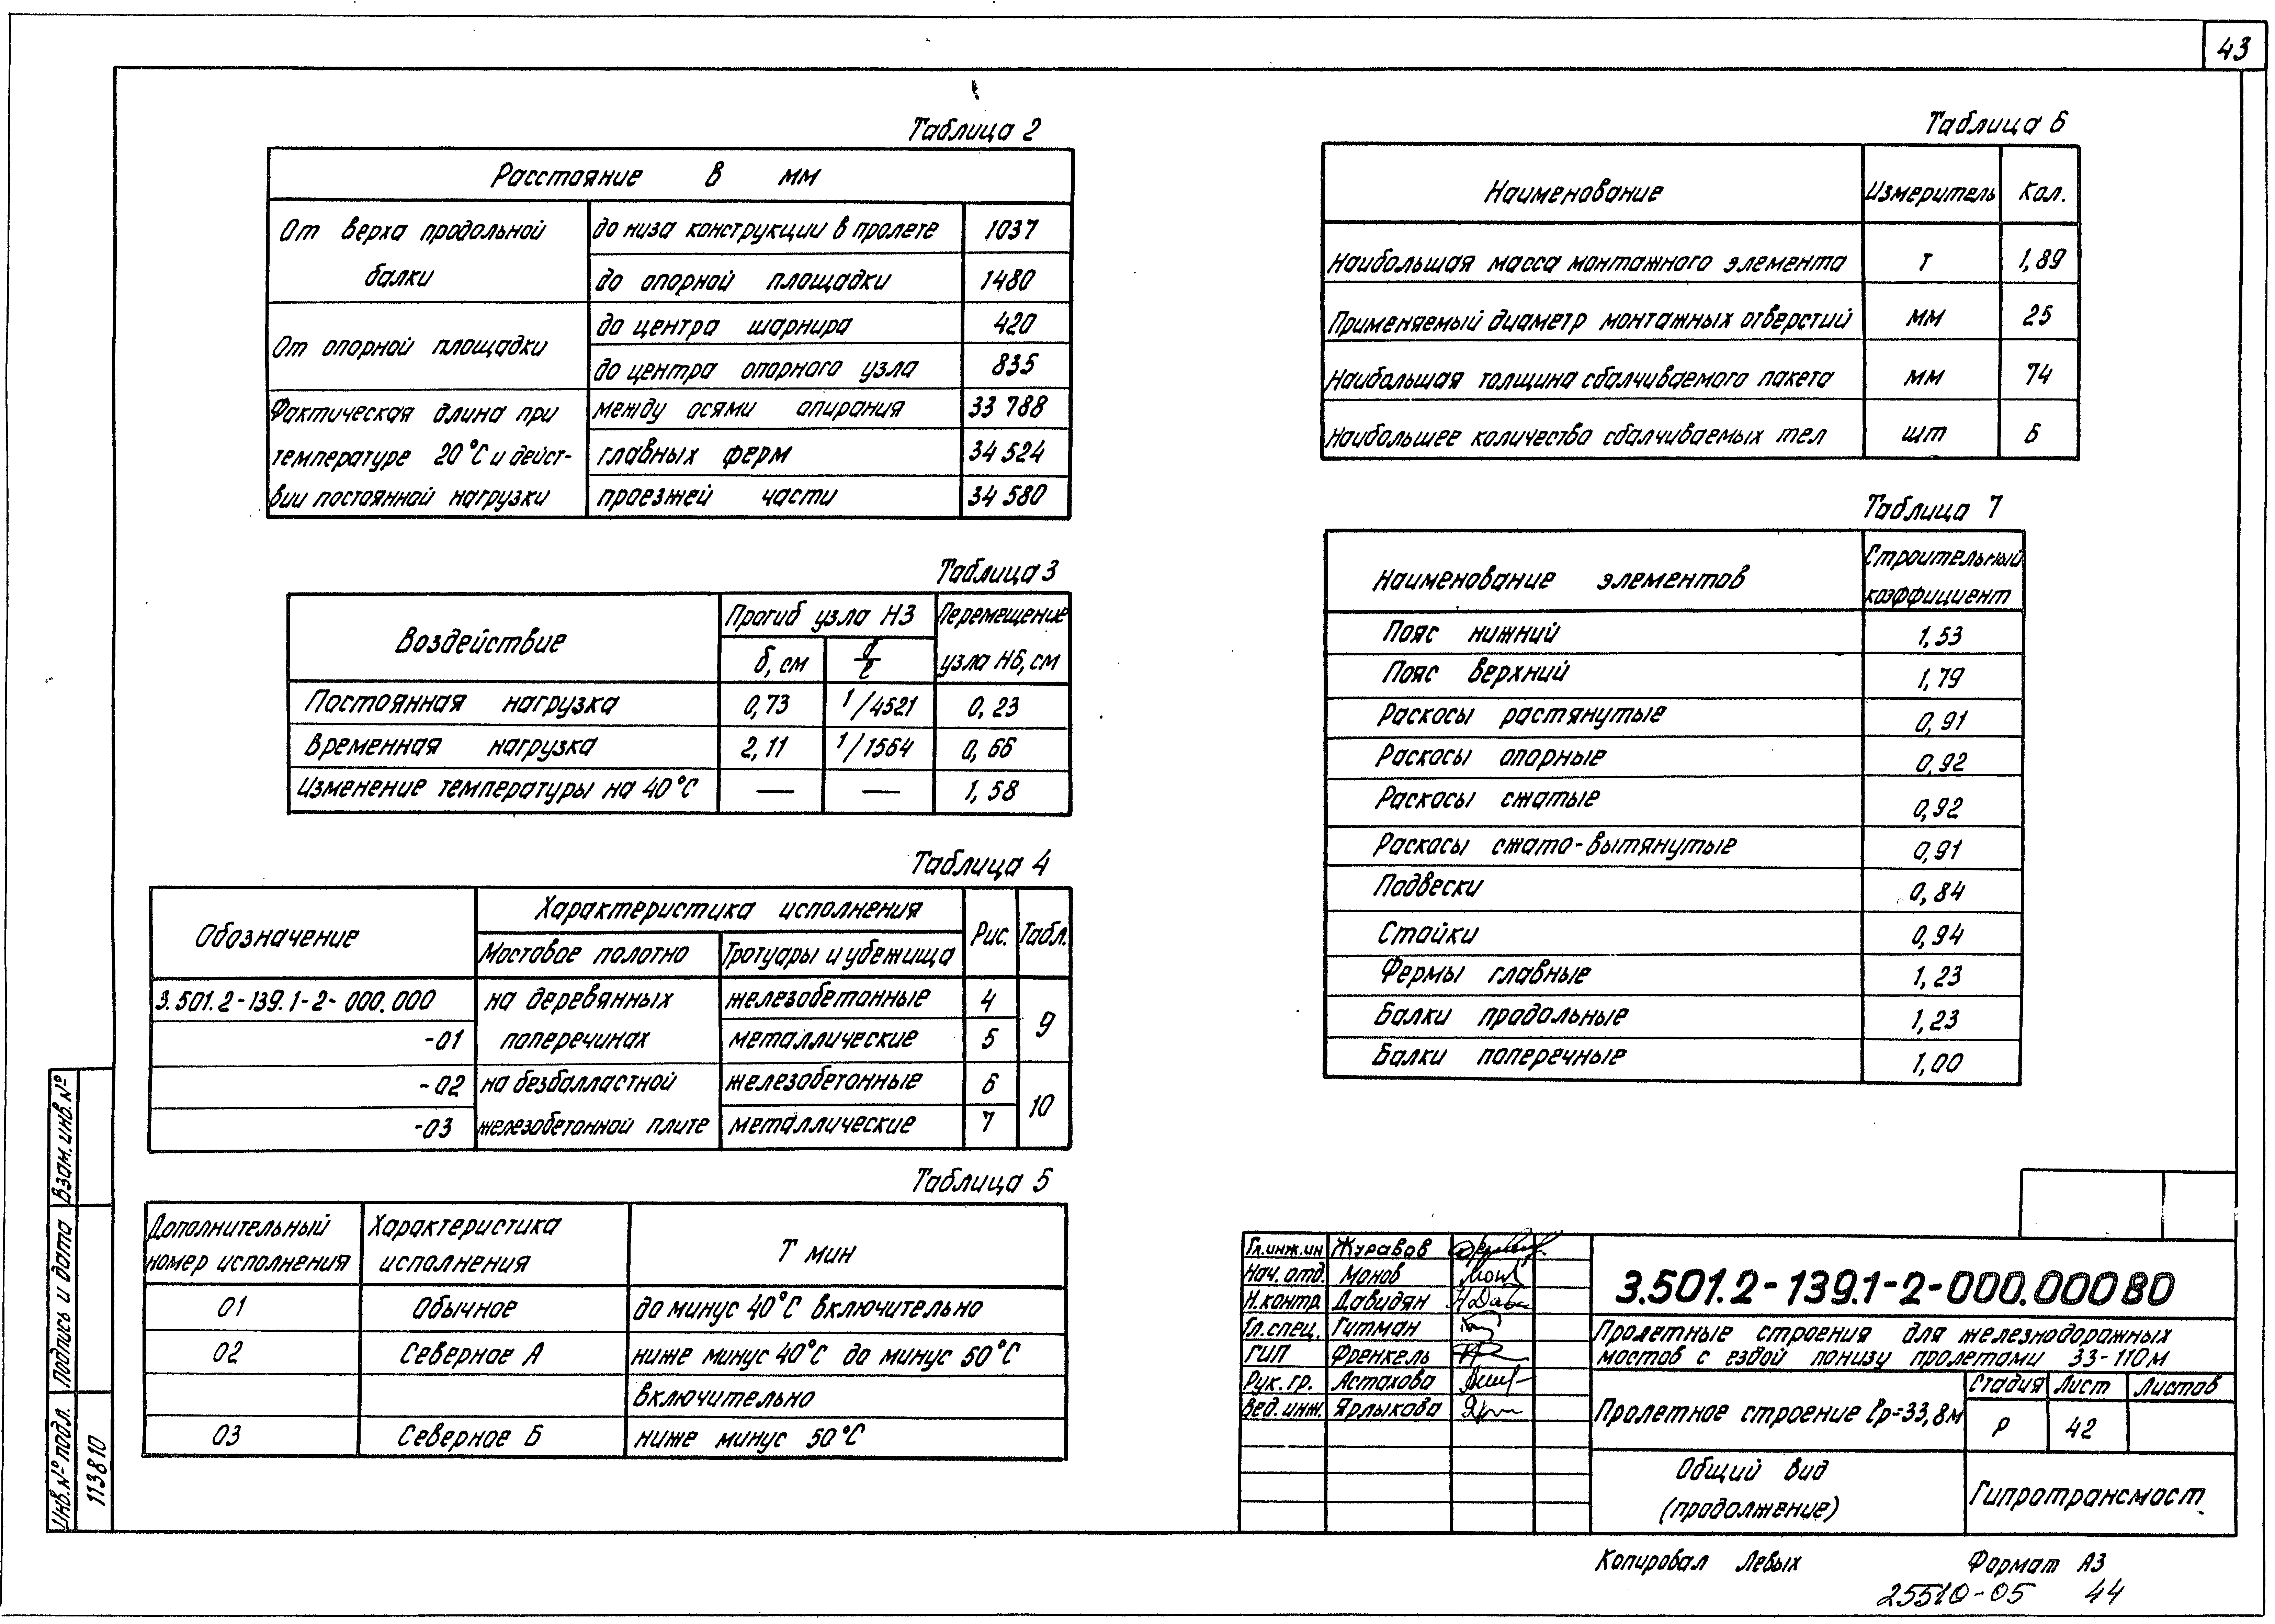 43
Таблица 2
Расстояние в мм
От верха продольной балки
до низа конструкции в пролете 1037
до опорной площадки 1480
От опорной площадки
до центра шарнира 420
до центра опорного узла 835
Фактическая длина при температуре 20°С и действии постоянной нагрузки
между осями опирания 33 788
главных ферм 34 524
проезжей части 34 580
Таблица 3
Воздействие
Прогиб узла Н3
Перемещение узла Н6, см
δ, см
δ/ℓ
Постоянная нагрузка 0,73 1/4521 0,23
Временная нагрузка 2,11 1/1564 0,66
Изменение температуры на 40°С — — 1,58
Таблица 4
Обозначение
Характеристика исполнения
Рис.
Табл.
Мостовое полотно
Тротуары и убежища
3.501.2-139.1-2-000.000 на деревянных железобетонные 4
-01 поперечинах металлические 5
9
-02 на безбалластной железобетонные 6
-03 железобетонной плите металлические 7
10
Таблица 5
Дополнительный номер исполнения
Характеристика исполнения
Т мин
01 Обычное до минус 40°С включительно
02 Северное А ниже минус 40°С до минус 50°С
включительно
03 Северное Б ниже минус 50°С
Таблица 6
Наименование Измеритель Кол.
Наибольшая масса монтажного элемента т 1,89
Применяемый диаметр монтажных отверстий мм 25
Наибольшая толщина сбалчиваемого пакета мм 74
Наибольшее количество сбалчиваемых тел шт 6
Таблица 7
Наименование элементов
Строительный коэффициент
Пояс нижний 1,53
Пояс верхний 1,79
Раскосы растянутые 0,91
Раскосы опорные 0,92
Раскосы сжатые 0,92
Раскосы сжато-вытянутые 0,91
Подвески 0,84
Стойки 0,94
Фермы главные 1,23
Балки продольные 1,23
Балки поперечные 1,00
Взам. инв. №
Подпись и дата
Инв. № подл.
113810
Гл.инж.ин Журавов
Нач. отд. Монов
Н.контр. Давидян
Гл.спец. Гитман
ГИП Френкель
Рук. гр. Астахова
Вед. инж. Ярлыкова
3.501.2-139.1-2-000.000 В0
Пролетные строения для железнодорожных
мостов с ездой понизу пролетами 33-110м
Пролетное строение ℓр=33,8м
Стадия Лист Листов
Р 42
Общий вид
(продолжение)
Гипротрансмост
Копировал Левых
Формат А3
25510-05 44